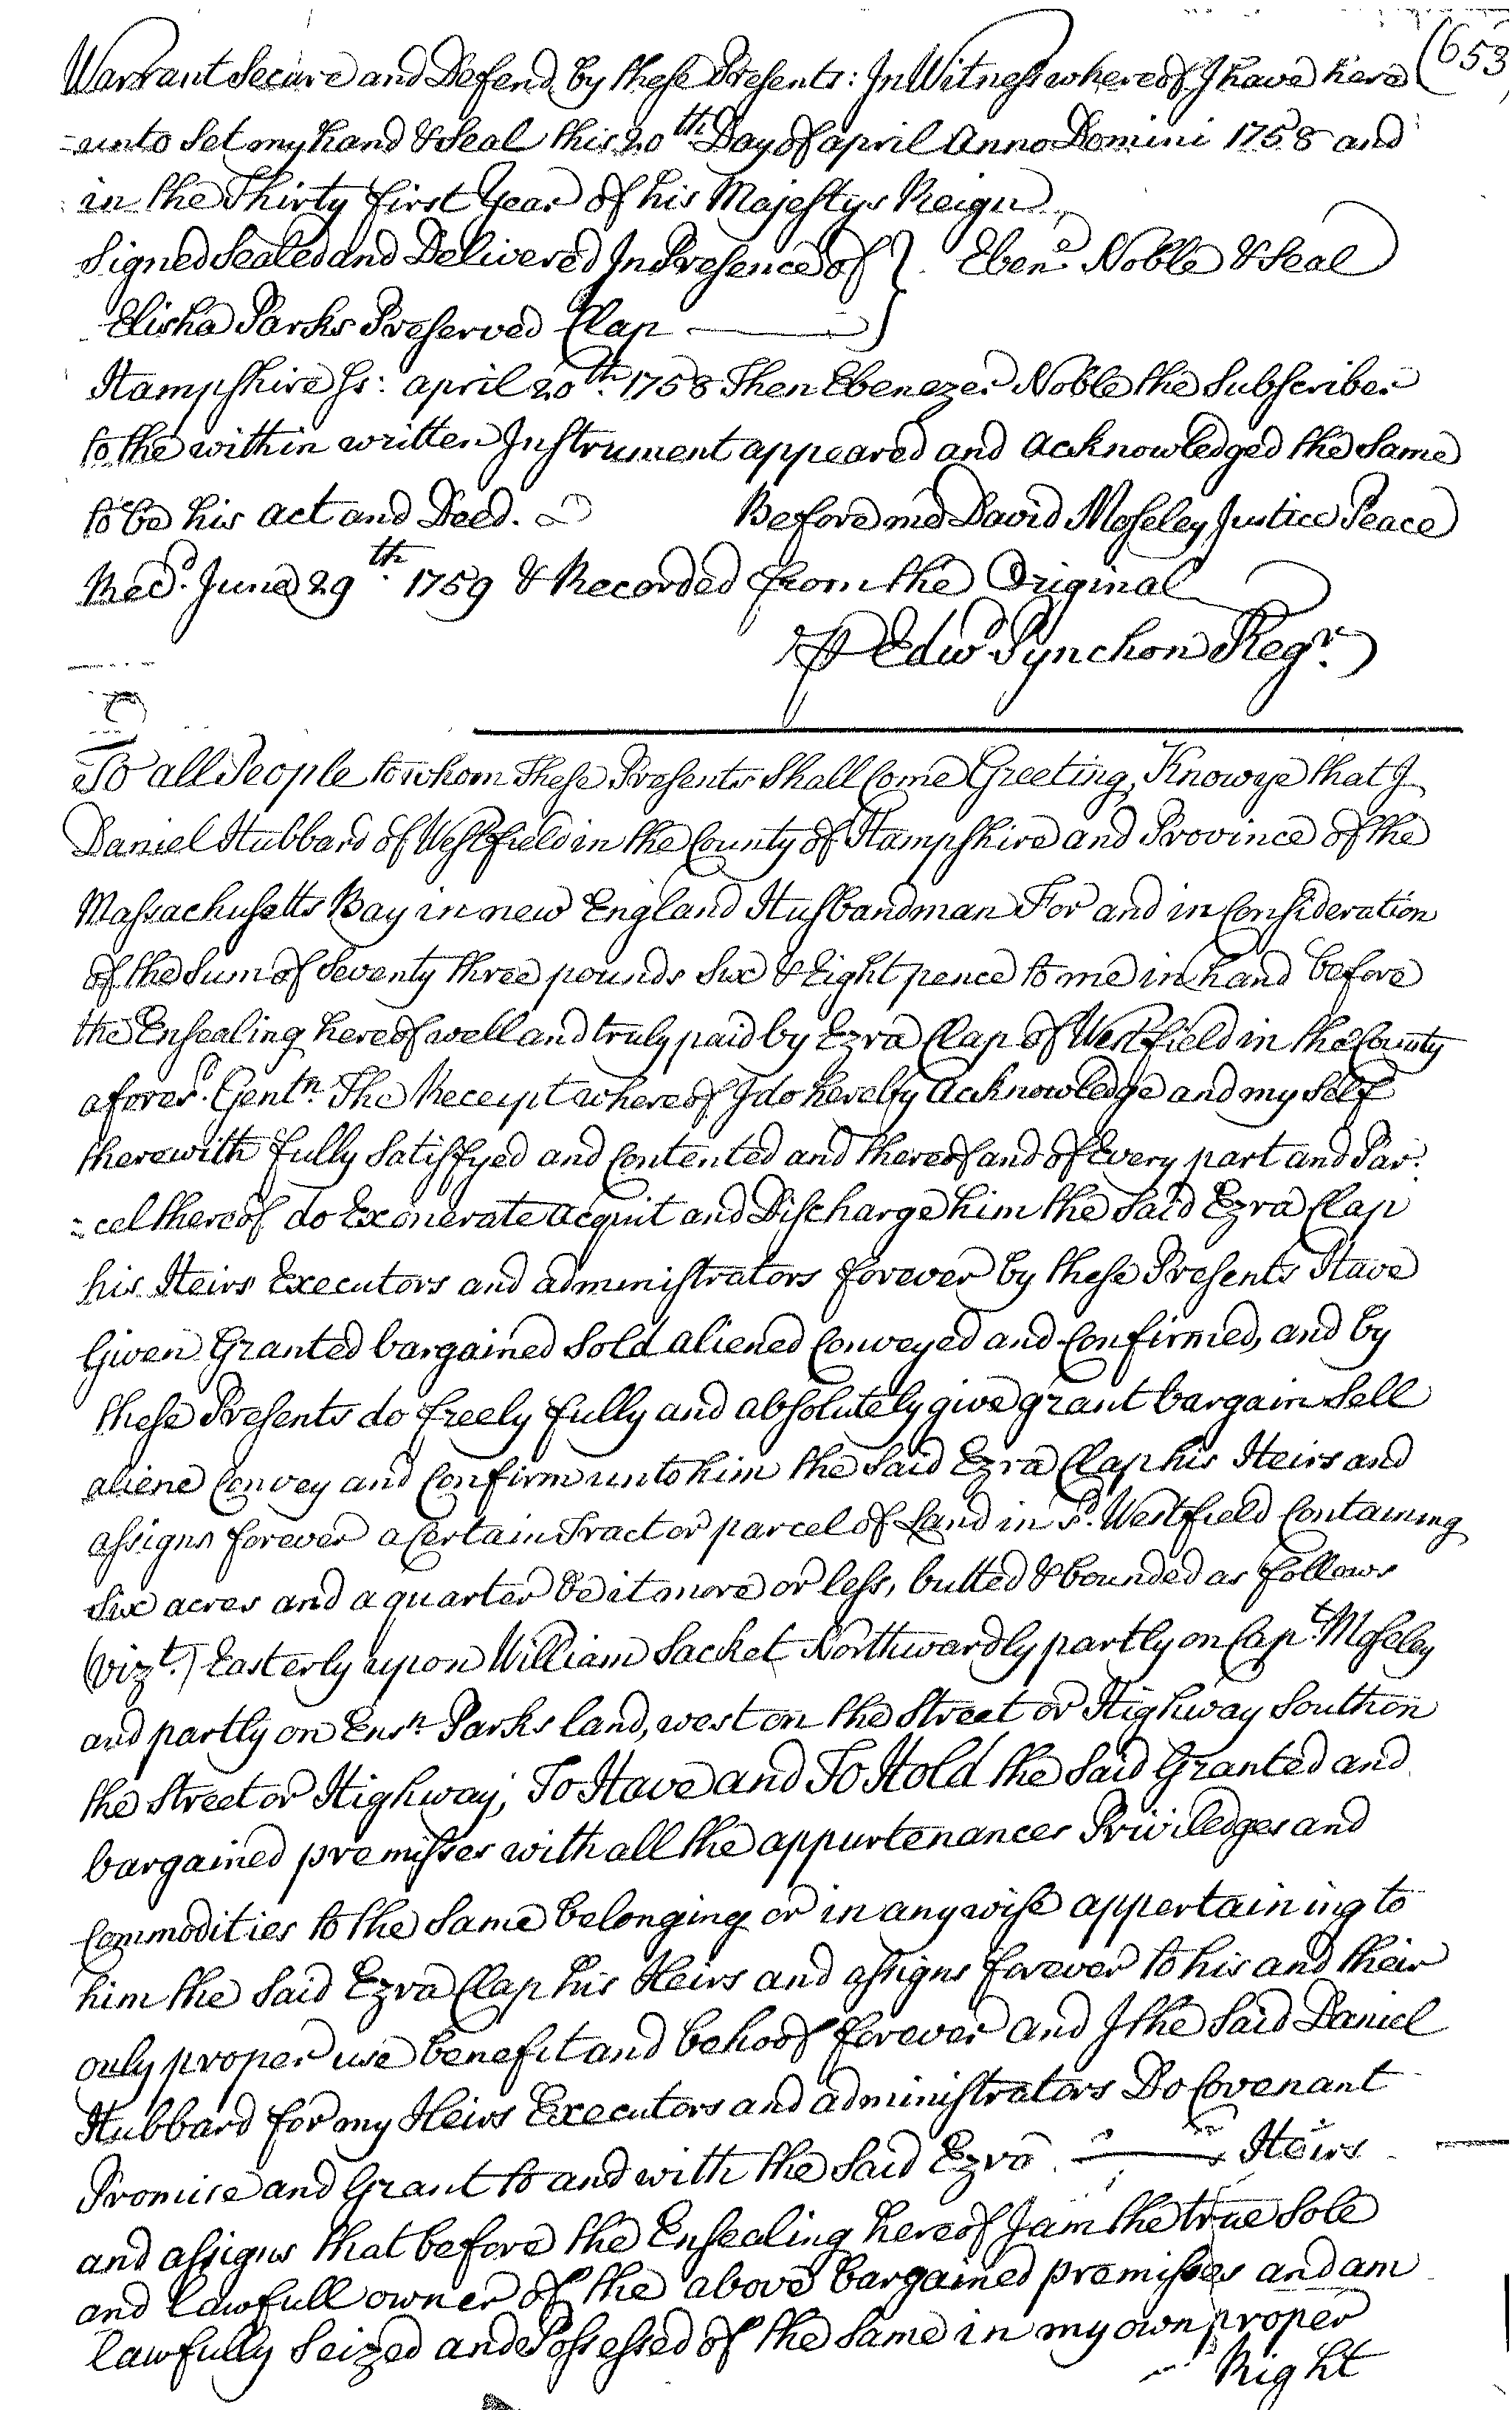 (653
Warrant Secure and Defend by these Presents: In Witness whereof I have here
-unto Set my hand & Seal this 20th Day of april Anno Domini 1758 and
in the Thirty first Year of his Majestys Reign.
Signed Sealed and Delivered In Presence of } Ebenr. Noble & Seal
Elisha Parks Preserved Clap
Hampshire ss: april 20th. 1758 Then Ebenezer Noble the Subscriber
to the within written Instrument appeared and acknowledged the Same
to be his act and Deed. Before me David Moseley Justice Peace
Recd. June 29th. 1759 & Recorded from the Original
P Edwd Pynchon Regr.
To all People to whom These Presents Shall Come Greeting, Know ye that I
Daniel Hubbard of Westfield in the County of Hampshire and Province of the
Massachusetts Bay in new England Husbandman For and in Consideration
of the Sum of Seventy three pounds Six & Eight pence to me in hand before
the Ensealing hereof well and truly paid by Ezra Clap of Westfield in the County
aforesd. Gentn. The Receipt whereof I do hereby acknowledge and my Self
therewith fully Satisfyed and Contented and thereof and of Every part and Par-
=cel thereof do Exonerate acquit and Discharge him the Said Ezra Clap
his Heirs Executors and administrators forever by these Presents Have
Given Granted bargained Sold aliened Conveyed and Confirmed, and by
these Presents do freely fully and absolutely give grant bargain Sell
aliene Convey and Confirm unto him the Said Ezra Clap his Heirs and
assigns forever a Certain Tract or parcel of Land in sd. Westfield Containing
Six acres and a quarter be it more or less, butted & bounded as follows
(vizt.) Easterly upon William Sacket Northwardly partly on Capt. Moseley
and partly on Ensn. Parks land, west on the Street or Highway South on
the Street or Highway; To Have and To Hold the Said Granted and
bargained premisses with all the appurtenances Priviledges and
Commodities to the Same belonging or in any wise appertaining to
him the Said Ezra Clap his Heirs and assigns forever to his and their
only proper use benefit and behoof forever and I the Said Daniel
Hubbard for my Heirs Executors and administrators Do Covenant
Promise and Grant to and with the Said Ezra Heirs
and assigns that before the Ensealing hereof I am the true Sole
and lawfull owner of the above bargained premisses and am
lawfully Seized and Possessed of the Same in my own proper
Right